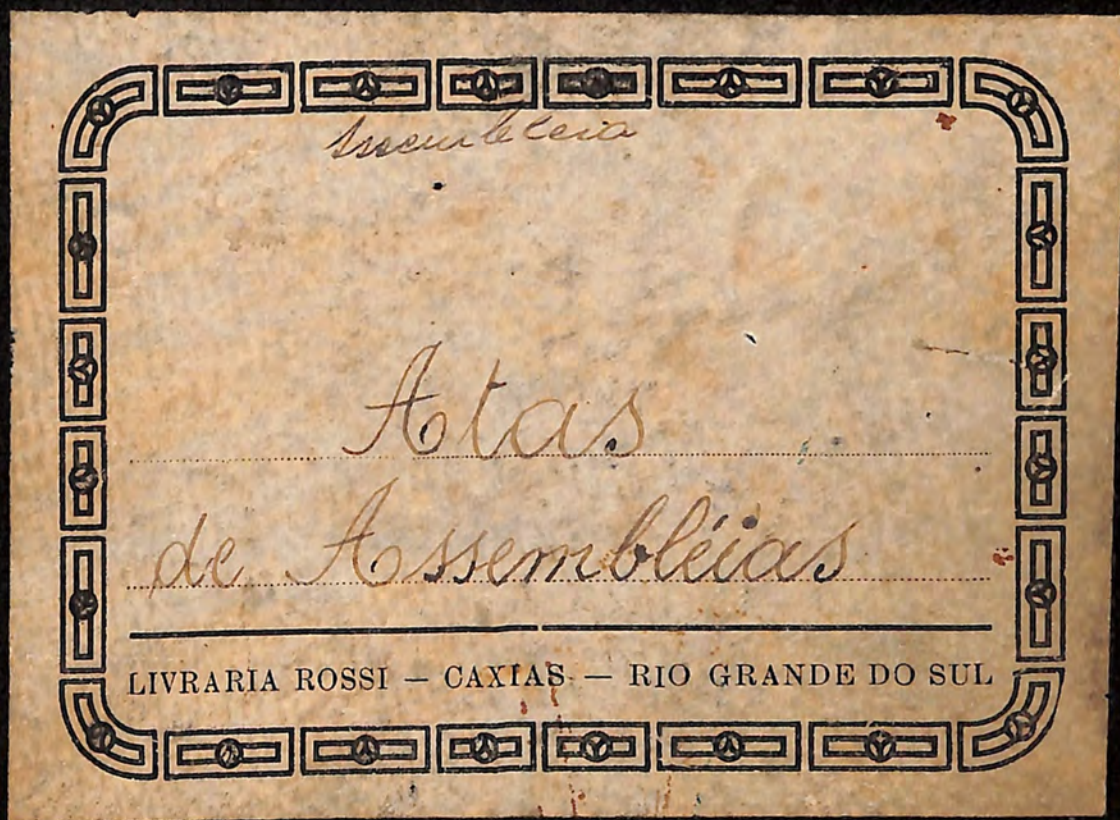 Assembleia
Atas
de Assembléias
LIVRARIA ROSSI — CAXIAS — RIO GRANDE DO SUL